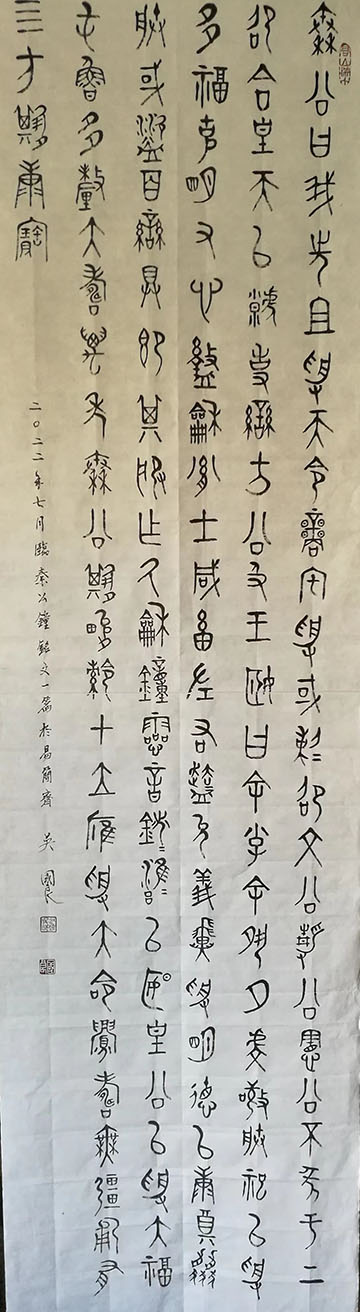 秦公曰我先且受天令商宅受或剌剌卲文公靜公憲公不㒸于上
卲合皇天以虩事蠻方公及王姬曰余小子余夙夕虔敬朕祀以受
多福克明又心盭龢胤士咸畜左右趩趩允義翼受明德以康奠協
朕或盜百蠻具即其服乍厥龢鐘靈音鍺鍺雍雍以匽皇公以受大福
屯魯多釐大壽萬年秦公其畯𬘗才立膺受大命眉壽無疆匍有
四方其康寶
二〇二二年七月臨秦公鐘銘文一篇於易簡齋 吴國良